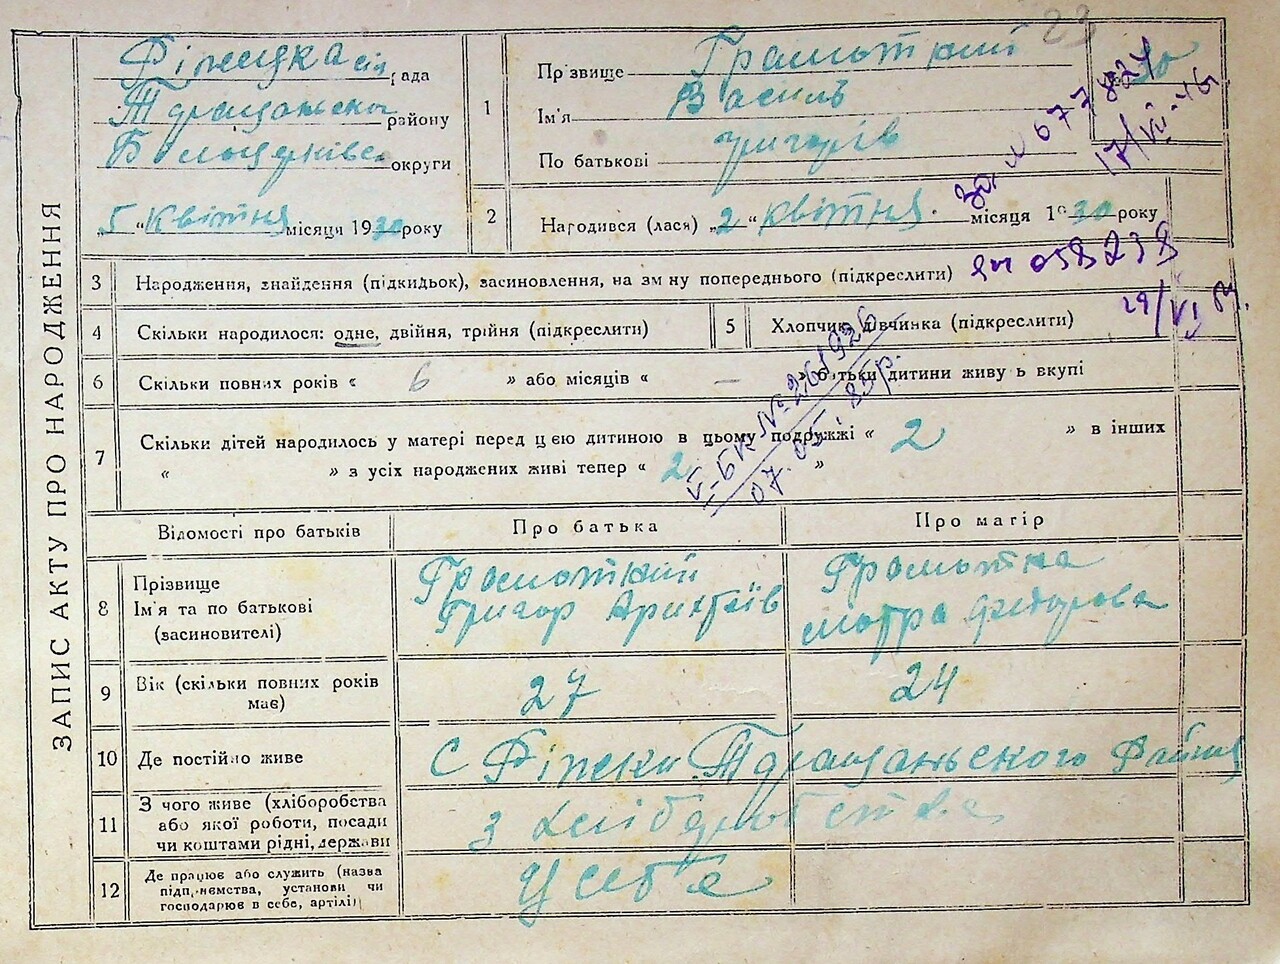 23
ЗАПИС АКТУ ПРО НАРОДЖЕННЯ
Ріжецка сіл рада
Таращанськ району
Білоцерківс округи
„5" Квітня місяця 1930 року
1
Прізвище Грамоткий
Ім'я Василь
По батькові Григорів
17/VII-46
2
Народився (лася) „2" Квітня. місяця 1930 року
3
Народження, знайдення (підкидьок), засиновлення, на зміну попереднього (підкреслити)
058238
29/VI
4
Скільки народилося: одне, двійня, трійня (підкреслити)
5
Хлопчик, дівчинка (підкреслити)
6
Скільки повних років « 6 » або місяців « — » батьки дитини живуть вкупі
V-БК № 261926
07.05.85р.
7
Скільки дітей народилось у матері перед цією дитиною в цьому подружжі « 2 » в інших
« » з усіх народжених живі тепер « 2 »
Відомості про батьків
Про батька
Про матір
8
Прізвище
Ім'я та по батькові
(засновителі)
Грамоткий
Григор
Грамотка
Мотря Федорова
9
Вік (скільки повних років
має)
27
24
10
Де постійно живе
С Ріжки Таращанського Району
11
З чого живе (хліборобства
або якої роботи, посади
чи коштами рідні, держави
З хліборобства
12
Де працює або служить (назва
підприємства, установи чи
господарює в себе, артілі)
У себе